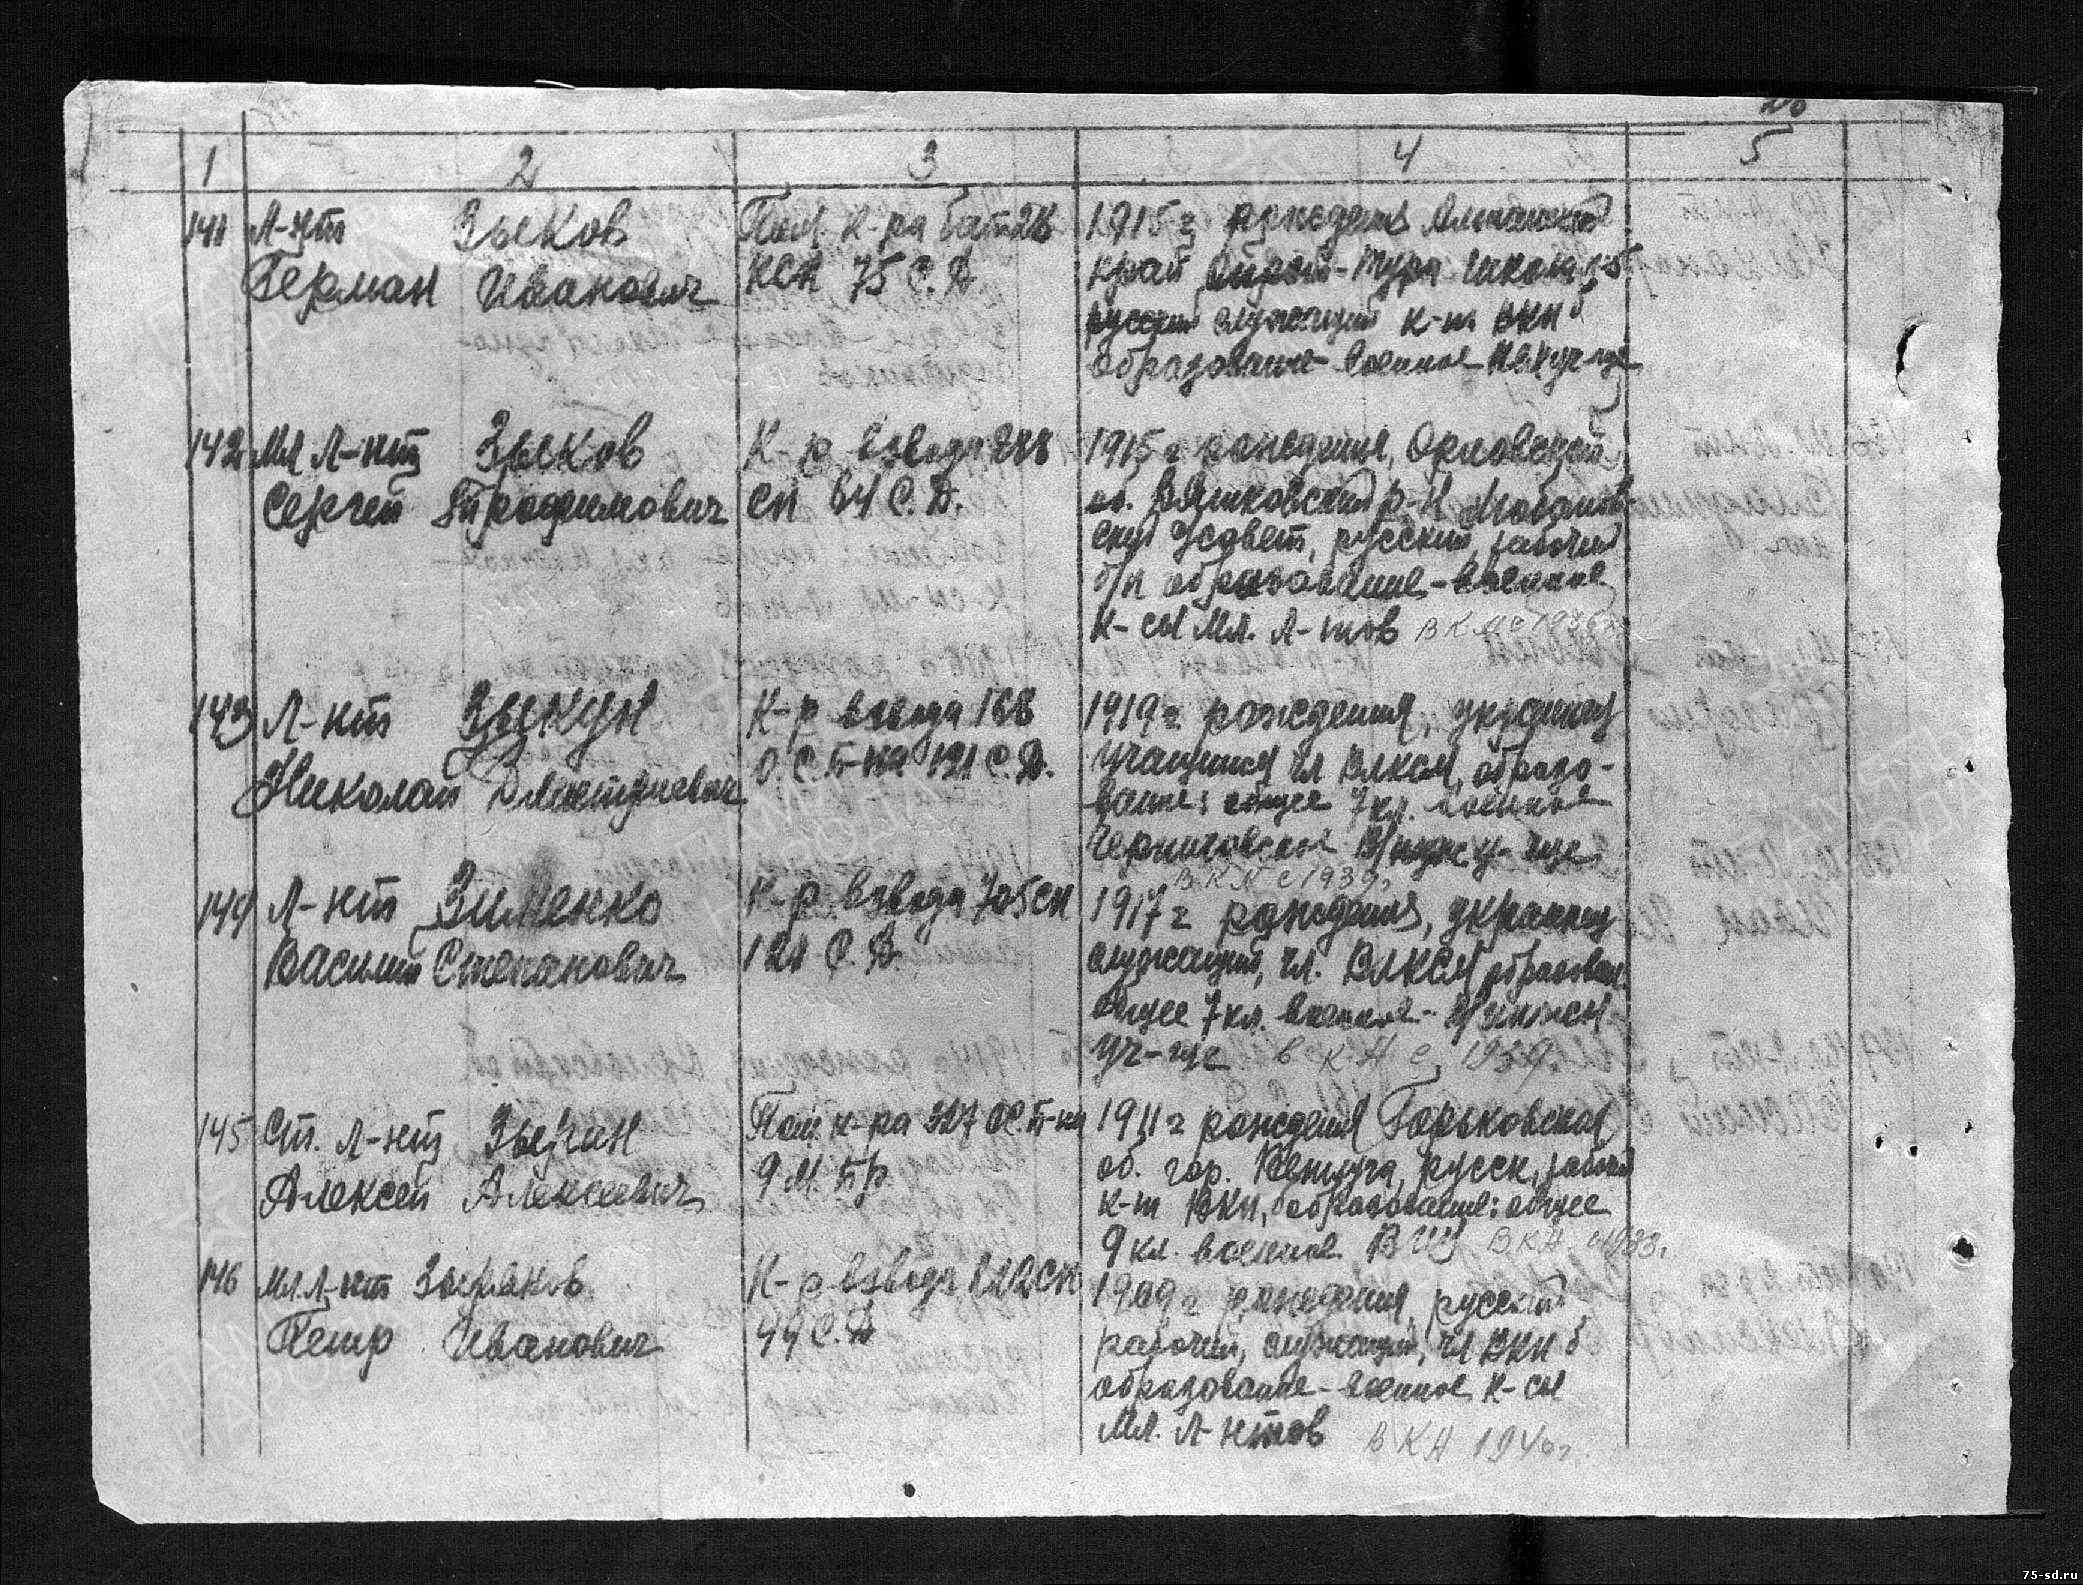 1 2 3 4 5
141 Л-нт Зыков
Герман Иванович
Пом. к-ра бат 28
КСП 75 С.Д.
1915 г рождения Алтайский
край Ойрот-Тура
русский служащий к-т ВКП б
образование военное
142 Мл Л-нт Зыков
Сергей Трофимович
К-р взвода 288
сп 64 С.Д.
1915 г рождения, Орловской
об. р-н
русский, рабочий
б/п образование - военное
К-сы Мл. Л-тов в КА с 1936 г
143 Л-нт Зыкун
Николай Дмитриевич
К-р взвода 168
О.С.Б-на 121 С.Д.
1919 г рождения, украинец
учащийся чл ВЛКСМ, образо-
вание: общее 7 кл. военное
Черниговское уч-ще
в КА с 1939 г.
144 Л-нт Зименко
Василий Степанович
К-р взвода 705 сп
121 С.Д.
1917 г рождения, украинец
служащий, чл. ВЛКСМ образован.
общее 7 кл. военное -
уч-ще в КА с 1939.
145 Ст. Л-нт Зызин
Алексей Алексеевич
Пом. к-ра 327 ОС.Б-на
9 М.Бр
1911 г рождения Горьковской
об. гор. русск, рабочий
к-т ВКП, б образование: общее
9 кл. военное В КА с 1933 г.
146 Мл. Л-нт Зыряков
Петр Иванович
К-р взвода
44 С.Д
1909 г рождения, русский
рабочий, служащий, чл ВКП б
образование - военное К-сы
Мл. Л-нтов в КА 1940 г.
75-sd.ru